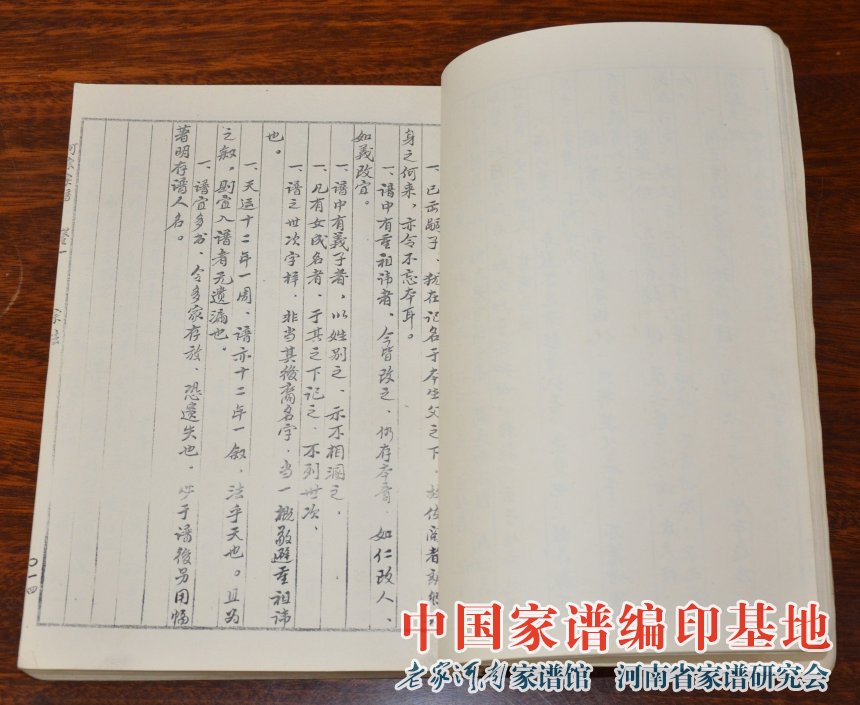 一、已出嗣子、犹在记名于本生父之下
身之何来，亦令不忘本耳。
一、谱中有重祖讳者，今皆改之、仍存本音，如仁改人、
如義改宜。
一、谱中有義子者，以姓别之、示不相溷之、
一、凡有女氏名者，于其之下记之、不列世次、
一、谱之世次字样、非当其後裔名字，当一概敬避重祖讳
也。
一、天运十二年一周、谱亦十二年一叙，法乎天也。且为
之叙。则宜入谱者无遗漏也。
一、谱宜多书、令多家存放、恐遗失也，必于谱後另用幅
著明存谱人名。
卷一
家法
〇一四
中国家谱编印基地
老家河南家谱馆 河南省家谱研究会